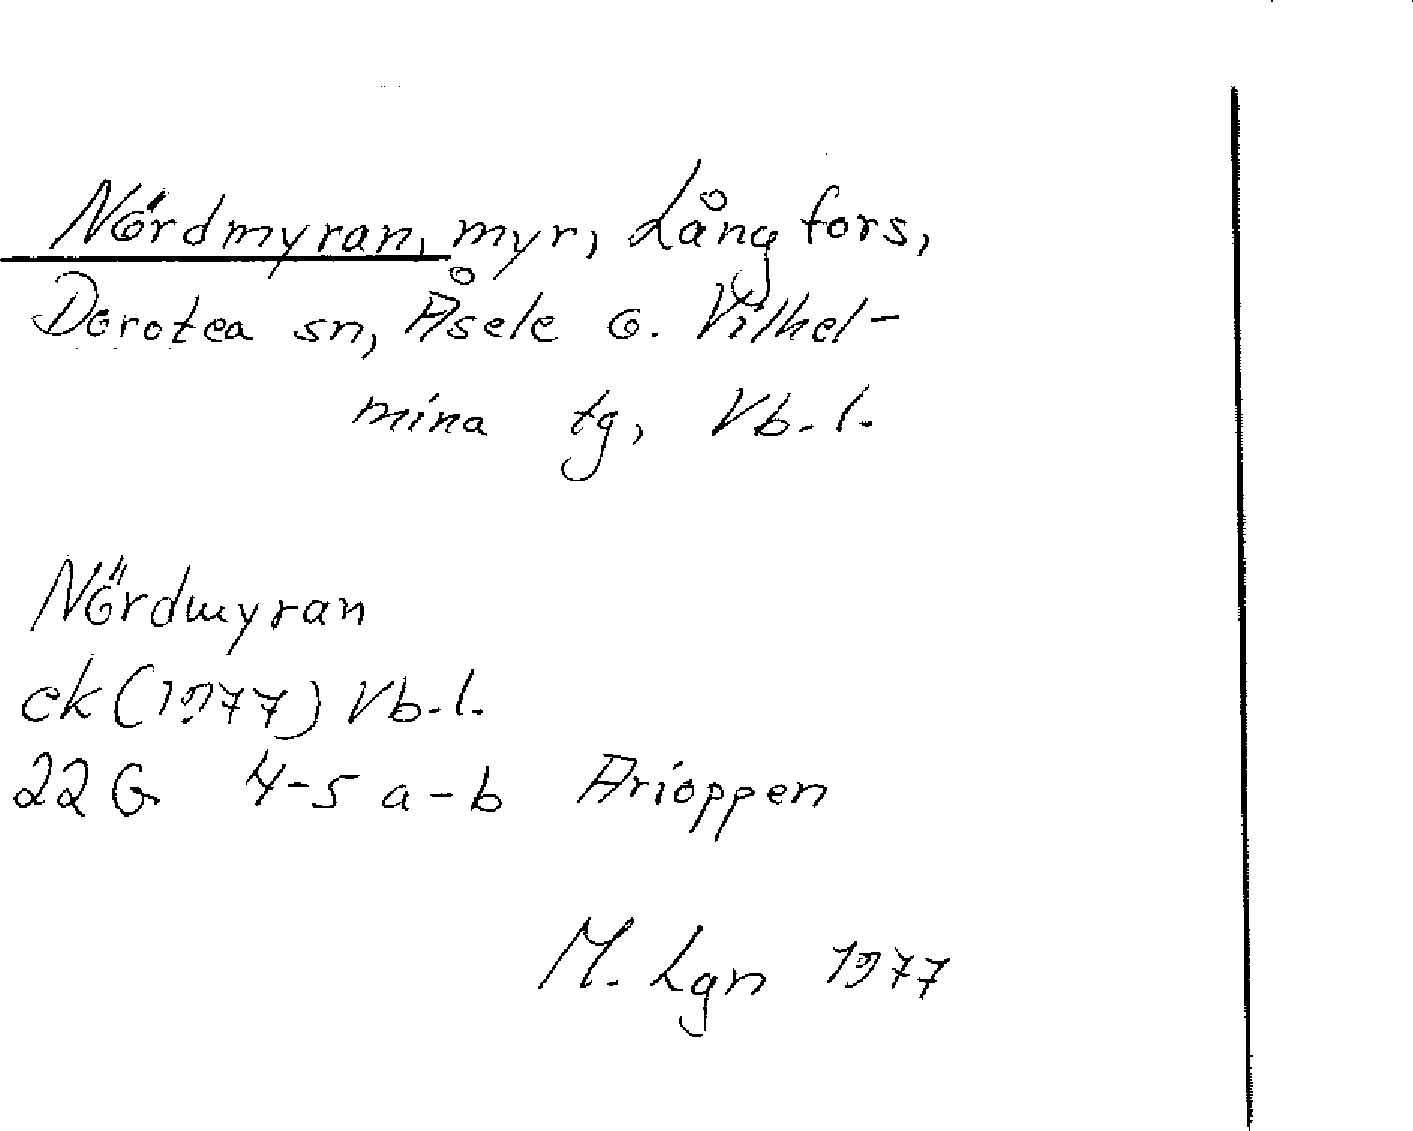 Nördmyran, myr, Långfors,
Dorotea sn, Åsele o. Vilhel-
mina tg, Vb. l.
Nördmyran
ek (1977) Vb. l.
22 G 4-5 a-b Arioppen
M. Lgn 1977